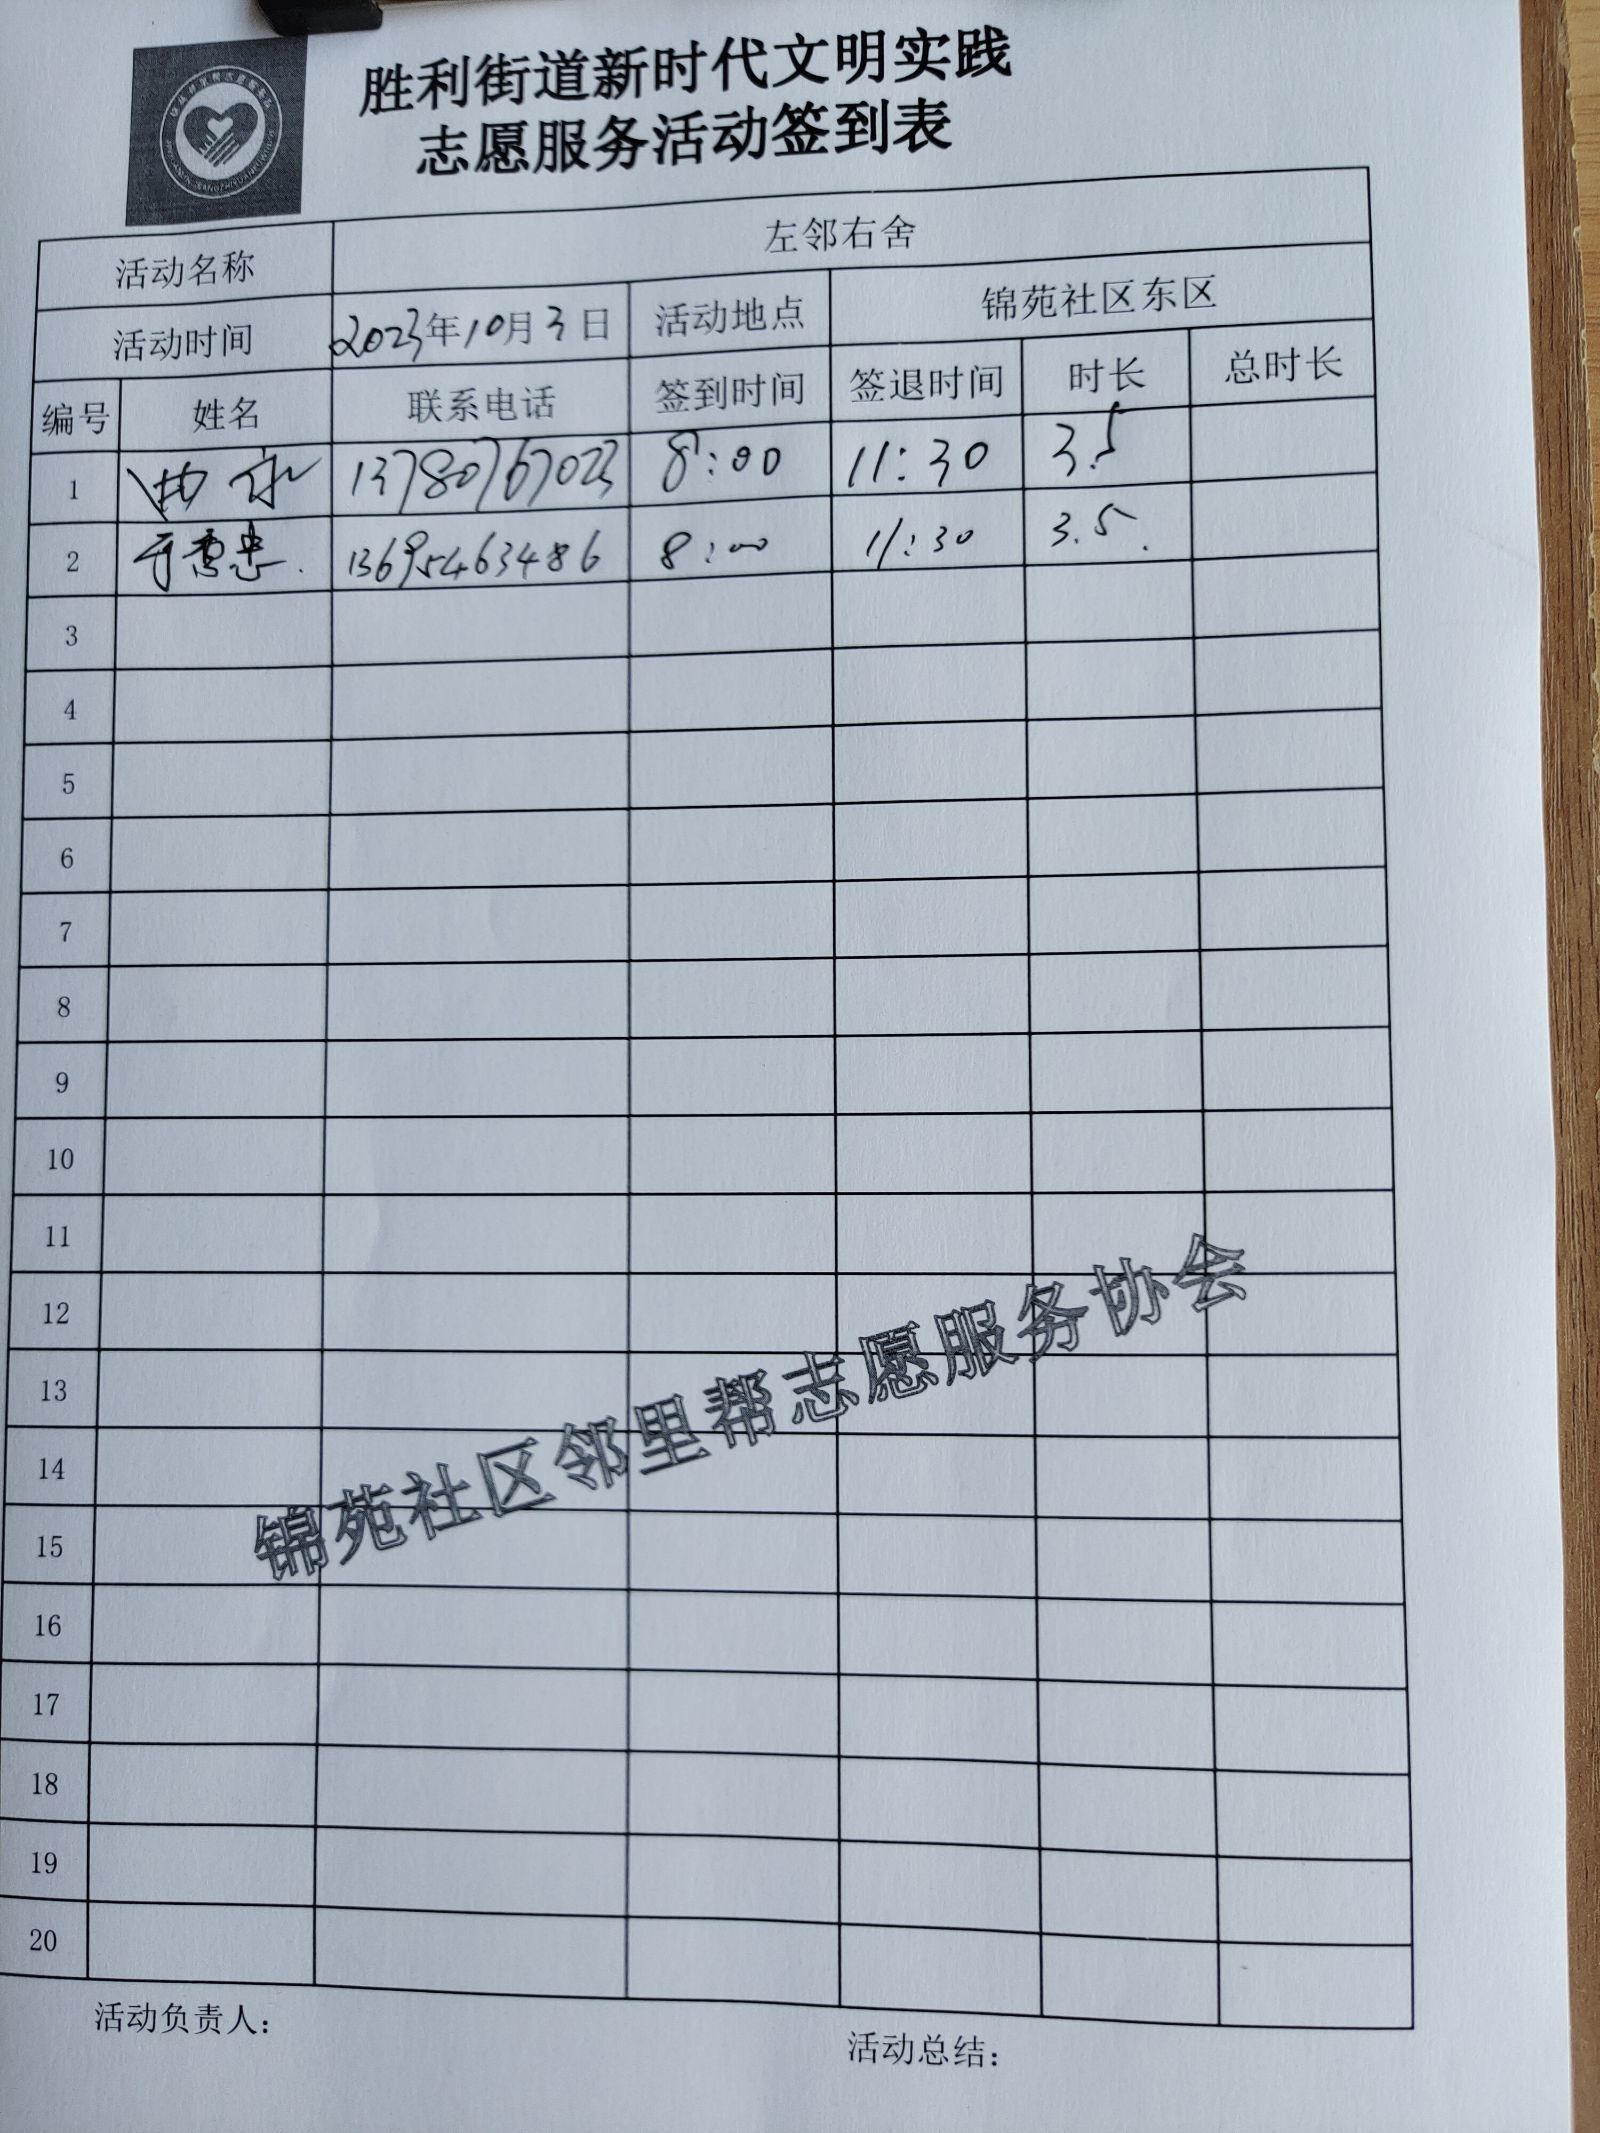 胜利街道新时代文明实践
志愿服务活动签到表
活动名称 左邻右舍
活动时间 2023年10月3日 活动地点 锦苑社区东区
编号 姓名 联系电话 签到时间 签退时间 时长 总时长
1 13780767023 8:00 11:30 3.5
2 13695463486 8:00 11:30 3.5
3
4
5
6
7
8
9
10
11
12
13
14
15
16
17
18
19
20
锦苑社区邻里帮志愿服务协会
活动负责人:
活动总结: